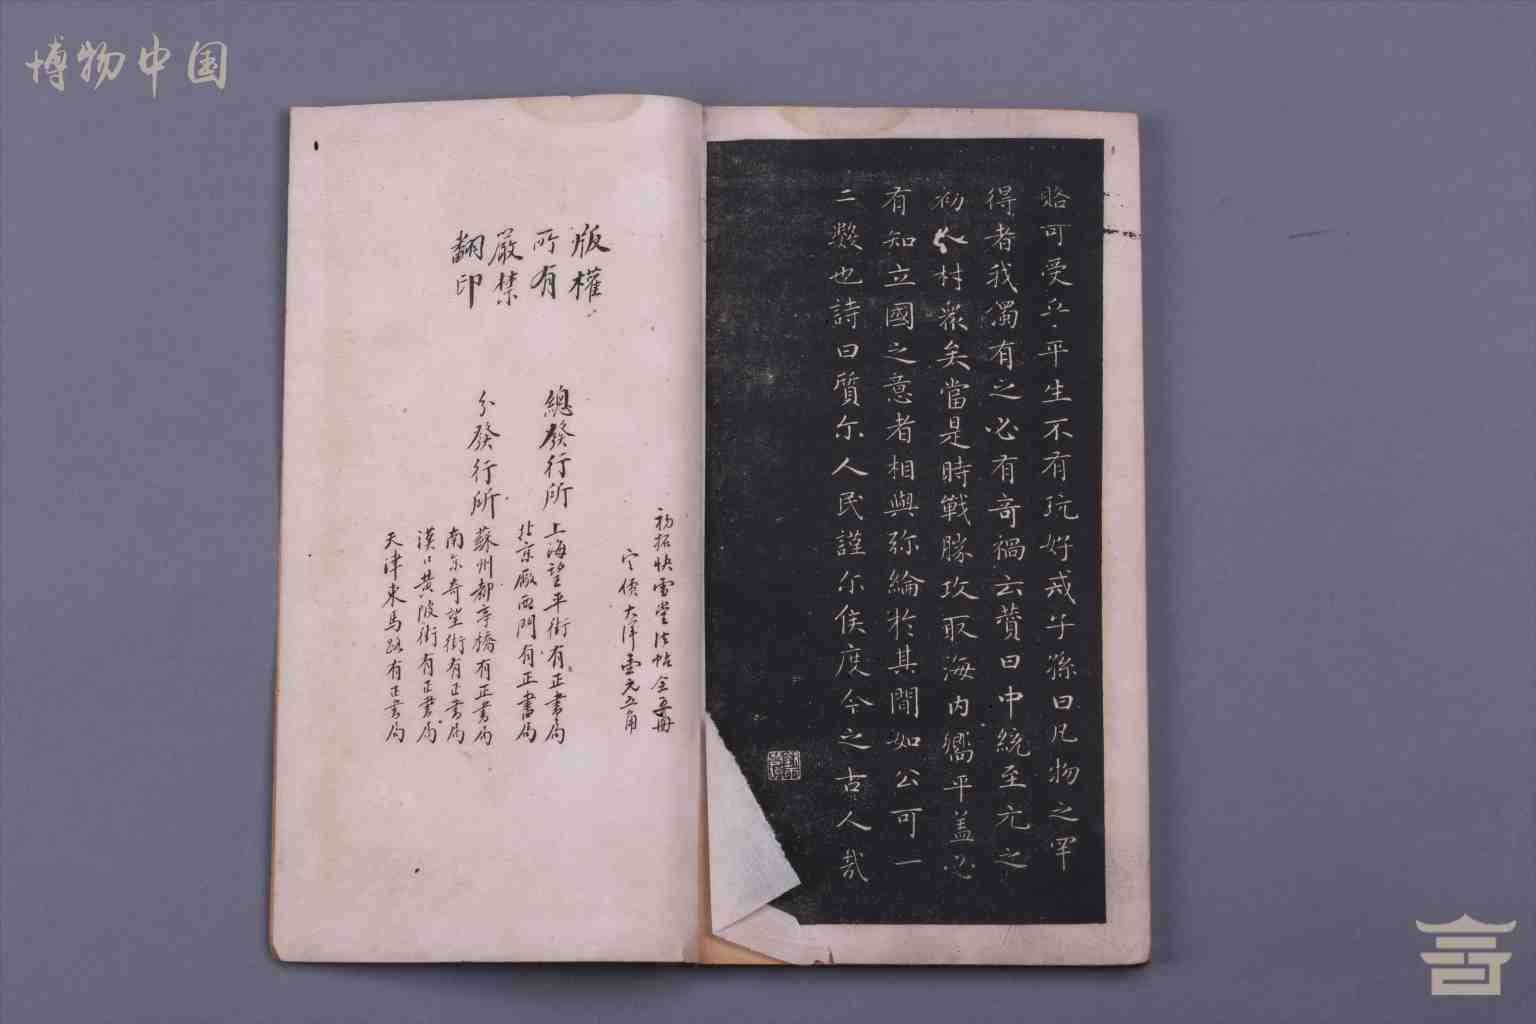 博物中国
賂可受乎平生不有玩好戒子孫曰凡物之罕
得者我獨有之必有奇禍云贊曰中統至元之
初人材衆矣當是時戰勝攻取海内嚮平蓋必
有知立國之意者相與弥綸扵其間如公可一
二數也詩曰質尔人民謹尔侯度今之古人哉
初拓快雪堂法帖全五冊
定價大洋壹元五角
版權
所有
嚴禁
翻印
總發行所 上海望平街有正書局
北京廠西門有正書局
分發行所 蘇州都亭橋有正書局
南京奇望街有正書局
漢口黄陂街有正書局
天津東馬路有正書局